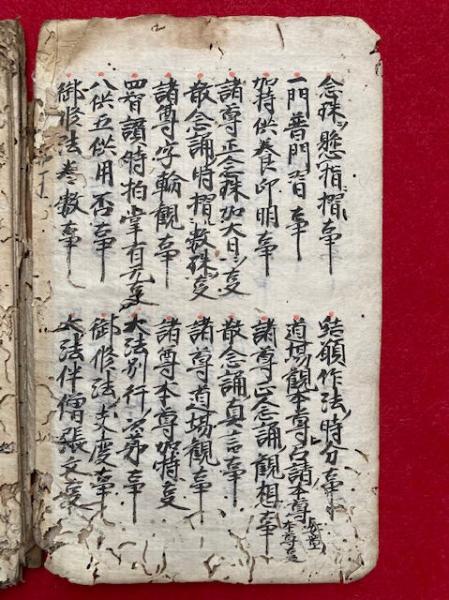 念珠ヲ懸指摺事
結願作法ノ時分事
一門普門習事
道場観本尊占請本尊
加持供養印明事
諸尊正念誦観想事
諸尊正念珠加大日ヲ事
散念誦真言事
散念誦ノ時摺数珠事
諸尊道場観事
諸尊字輪観事
諸尊本尊加持事
四智讃時拍掌有无事
大法別行ノ事
八供五供用否事
御修法支度事
御修法巻数事
大法伴僧張文事